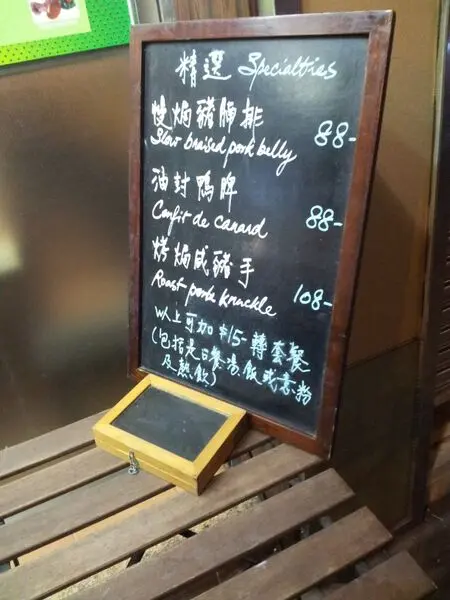 精選 Specialties
慢焗豬腩排 88-
Slow braised pork belly
油封鴨脾 88-
Confit de canard
烤焗咸豬手
Roast pork knuckle 108-
以上可加$15-轉套餐
(包括是日餐湯,飯或意粉
及熱飲)